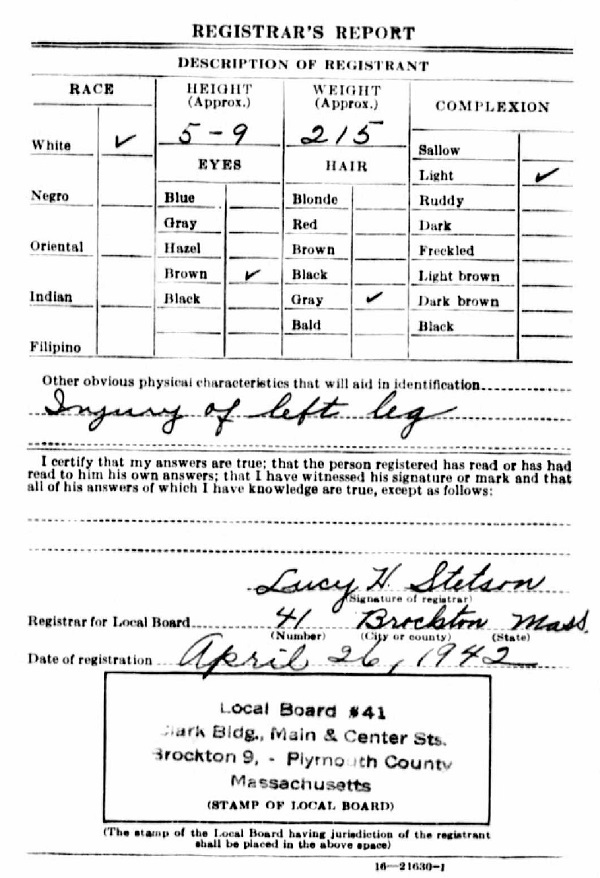 REGISTRAR'S REPORT
DESCRIPTION OF REGISTRANT
RACE
HEIGHT (Approx.)
WEIGHT (Approx.)
COMPLEXION
5-9
215
White ✓
EYES
HAIR
Sallow
Light ✓
Negro
Blue
Blonde
Ruddy
Gray
Red
Dark
Oriental
Hazel
Brown
Freckled
Brown ✓
Black
Light brown
Indian
Black
Gray ✓
Dark brown
Bald
Black
Filipino
Other obvious physical characteristics that will aid in identification
Injury of left leg
I certify that my answers are true; that the person registered has read or has had
read to him his own answers; that I have witnessed his signature or mark and that
all of his answers of which I have knowledge are true, except as follows:
Lucy H. Stetson
(Signature of registrar)
Registrar for Local Board 41 Brockton Mass.
(Number) (City or county) (State)
Date of registration April 26, 1942
Local Board #41
Bldg., Main & Center Sts.
Brockton 9, - Plymouth County
Massachusetts
(STAMP OF LOCAL BOARD)
(The stamp of the Local Board having jurisdiction of the registrant
shall be placed in the above space)
16—21630-1